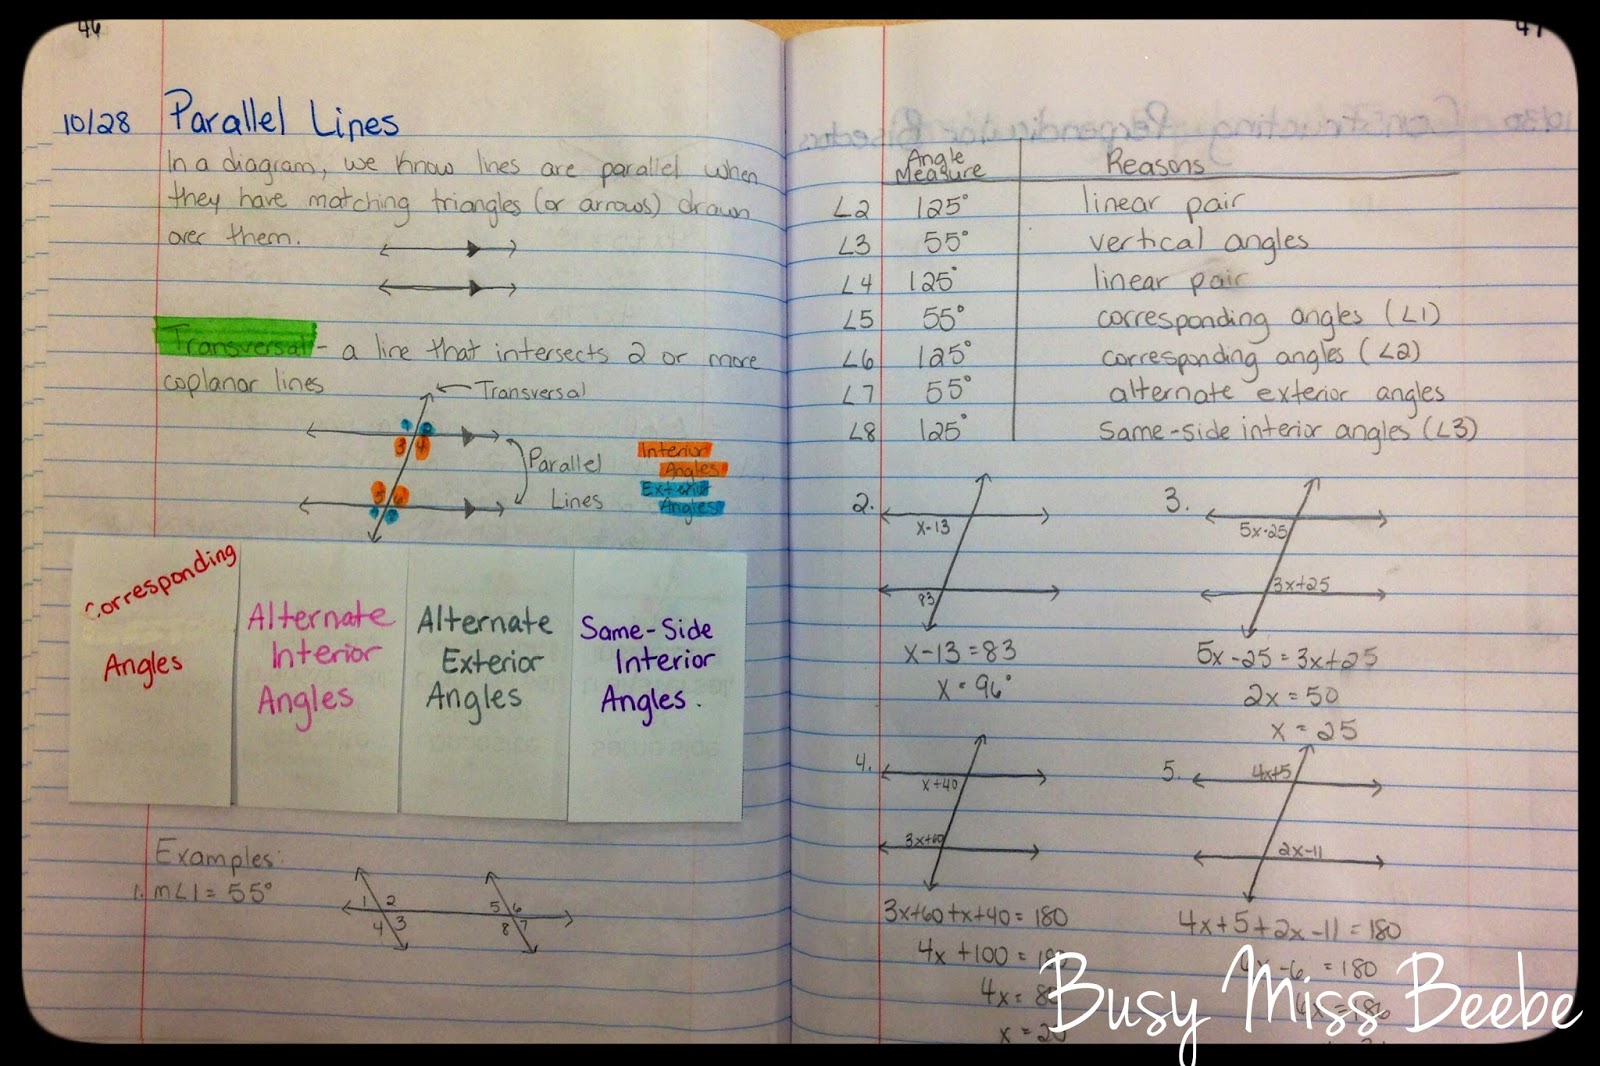 46
10/28 Parallel Lines
In a diagram, we know lines are parallel when
they have matching triangles (or arrows) drawn
over them.
Transversal - a line that intersects 2 or more
coplanar lines
Transversal
1 2
3 4
Parallel
Lines
5 6
7 8
Interior
Angles
Exterior
Angles
Corresponding
Angles
Alternate
Interior
Angles
Alternate
Exterior
Angles
Same-Side
Interior
Angles.
Examples:
1. m∠1 = 55°
1 2
4 3
5 6
8 7
47
10/30 Constructing Perpendicular Bisectors
Angle
Measure
Reasons
∠2 125° linear pair
∠3 55° vertical angles
∠4 125° linear pair
∠5 55° corresponding angles (∠1)
∠6 125° corresponding angles (∠2)
∠7 55° alternate exterior angles
∠8 125° same-side interior angles (∠3)
2.
x-13
83
x-13 = 83
x = 96°
3.
5x-25
3x+25
5x-25 = 3x+25
2x = 50
x = 25
4.
x+40
3x+60
3x+60+x+40 = 180
4x+100 = 180
4x = 80
x = 20
5.
4x+5
2x-11
4x+5+2x-11 = 180
-6 = 180
Busy Miss Beebe